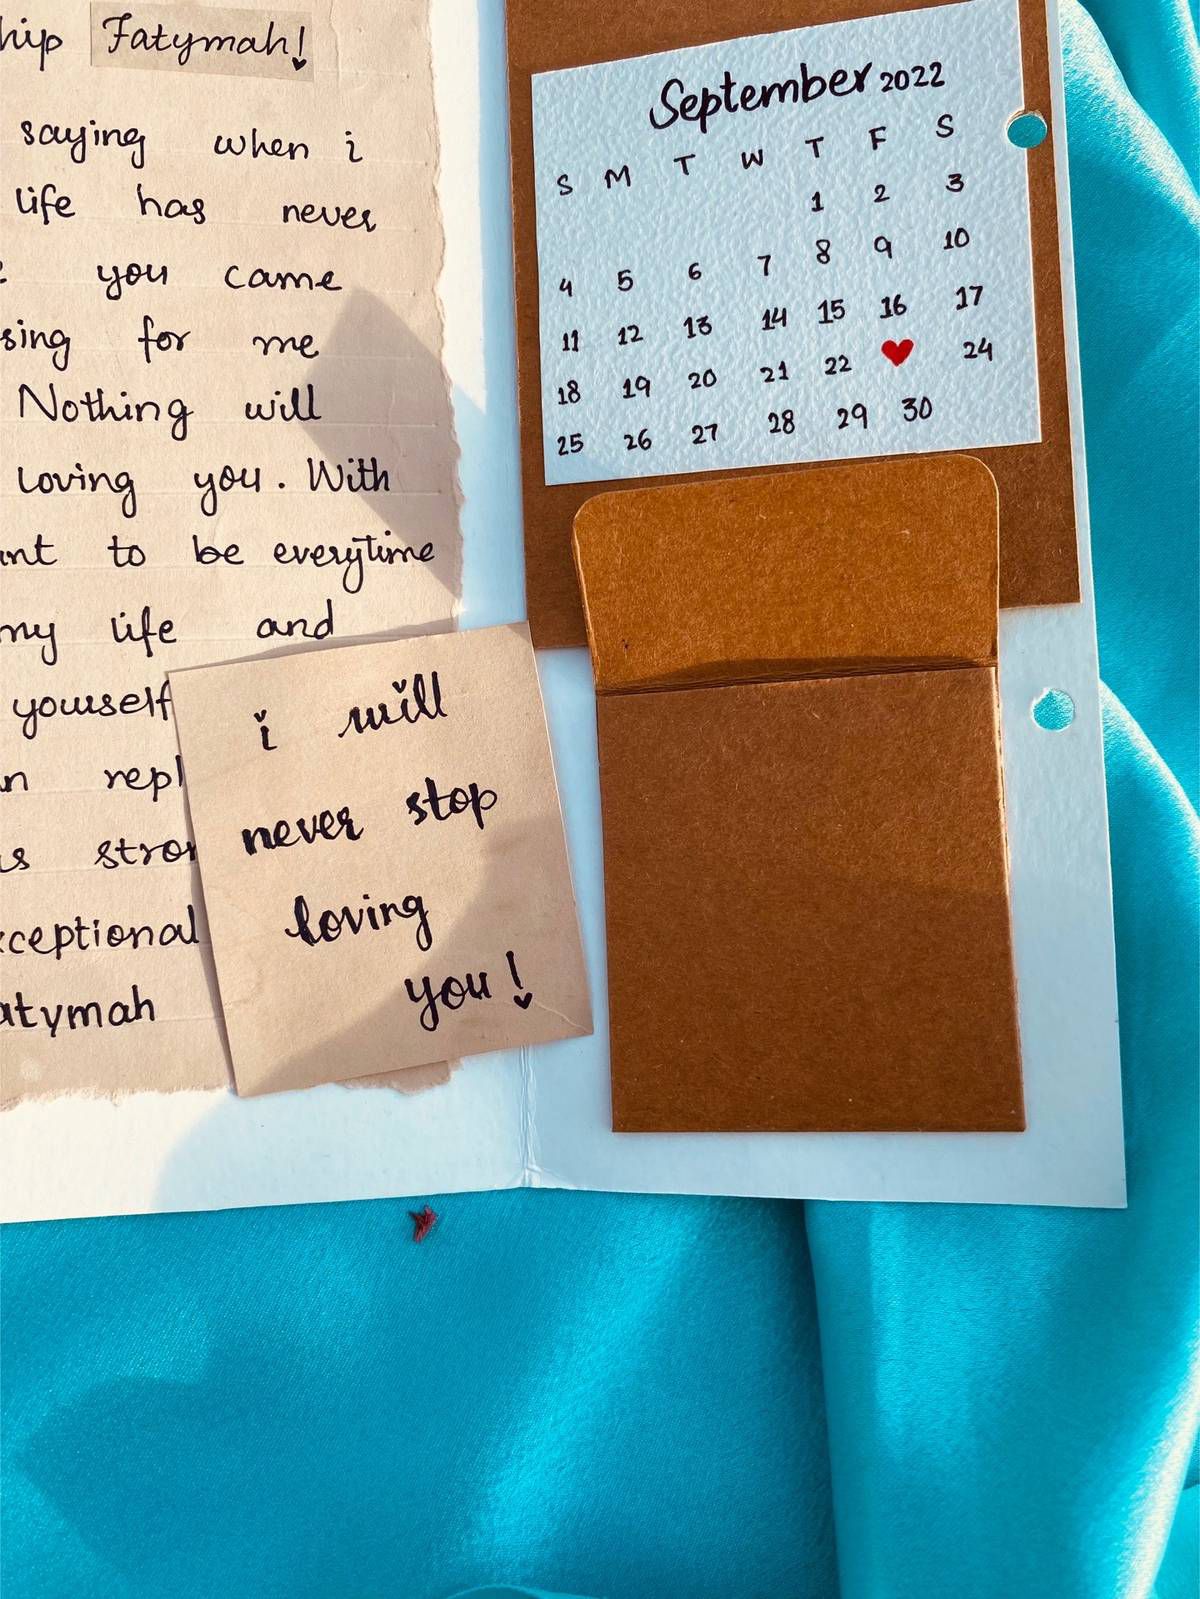 hip Fatymah!
saying when i
life has never
you came
sing for me
Nothing will
loving you. With
to be everytime
my life and
yourself
repl
stron
ceptional
atymah
i will
never stop
loving
you!
September 2022
S M T W T F S
1 2 3
4 5 6 7 8 9 10
11 12 13 14 15 16 17
18 19 20 21 22 ♥ 24
25 26 27 28 29 30